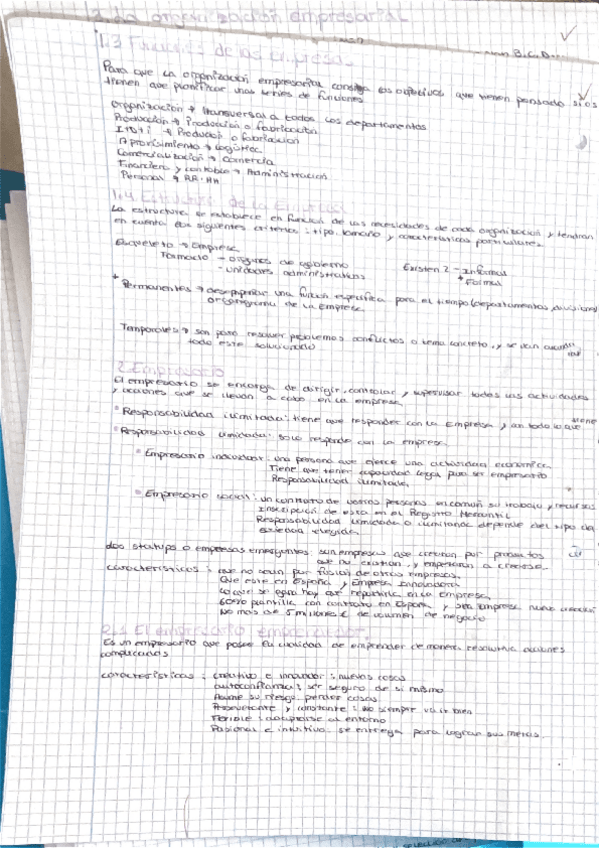 1. La organización empresarial
1.3 Funciones de las empresas
B.C.D
Para que la organización empresarial consiga los objetivos que tienen pensado
tienen que planificar unas series de funciones
Organización → transversal a todos los departamentos
Producción → Producción o fabricación
→ Producción o fabricación
Aprovisimiento → Logística
Comercialización → Comercia
Financiero y contable → Administración
Personal → RR.HH
1.4 Estructura de la Empresa
La estructura se establece en función de las necesidades de cada organización y tendrán
en cuenta los siguientes criterios: tipo, tamaño y características particulares
Esqueleto → Empresa
Formado - órganos de gobierno
- unidades administrativas
Existen 2 - Informal
Formal
Permanentes → desempeñar una función específica para el tiempo (departamentos, divisiones
organigrama de la empresa.
Temporales → son para resolver problemas conflictos o tema concreto, y se van
todo este solucionado
2. Empresario
El empresario se encarga de dirigir, controlar y supervisar todas las actividades
y acciones que se llevan a cabo en la empresa
Responsabilidad ilimitada: tiene que responder con la Empresa y con todo lo que tiene
Responsabilidad limitada: solo responde con la empresa
Empresario individual: una persona que ejerce una actividad económica
Tiene que tener capacidad legal para ser empresario
Responsabilidad ilimitada
Empresario social: un contrato de varias personas en común su trabajo y recursos
Inscripción de esto en el Registro Mercantil
Responsabilidad limitada o ilimitada depende del tipo de
elegida
Las startups o empresas emergentes: son empresas que crearan por productos
que no existían, y empezaron a crecer.
características: que no sean por fusión de otras empresas.
Que este en España y Empresa Innovadora
Lo que se gana hay que repartirla en la empresa
60% plantilla con contrato en España y sea empresa nueva
No más de 5 millones € de volumen de negocio
2.1 El empresario emprendedor
Es un empresario que posee la cualidad de emprender de manera resolutiva acciones
complicadas
características: creativo e innovador: nuevas cosas
autoconfianza: ser seguro de si mismo
Asume su riesgo: perder cosas
Perseverante y constante: no siempre va ir bien
Flexible: adaptarse al entorno
Pasional e intuitivo: se entrega para lograr sus metas.